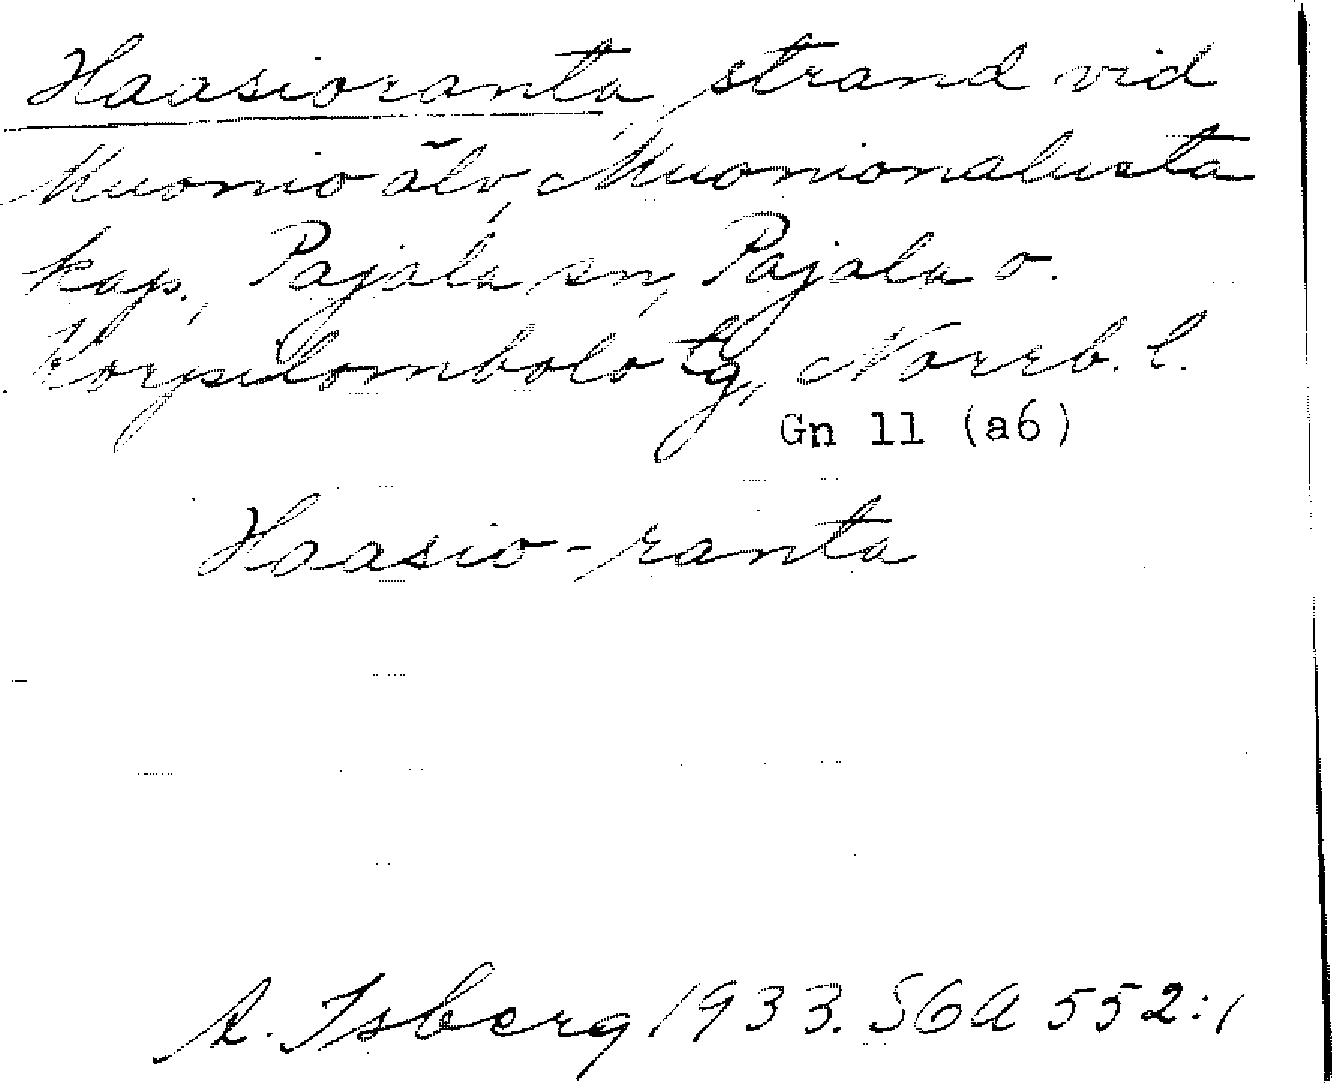 Haasioranta, strand vid
Muonio älv, Muonionalusta
kap., Pajala sn, Pajala o.
Korpilombolo tg, Norrb. l.
Gn 11 (a6)
Haasio-ranta
A. Isberg 1933. SGA 552:1